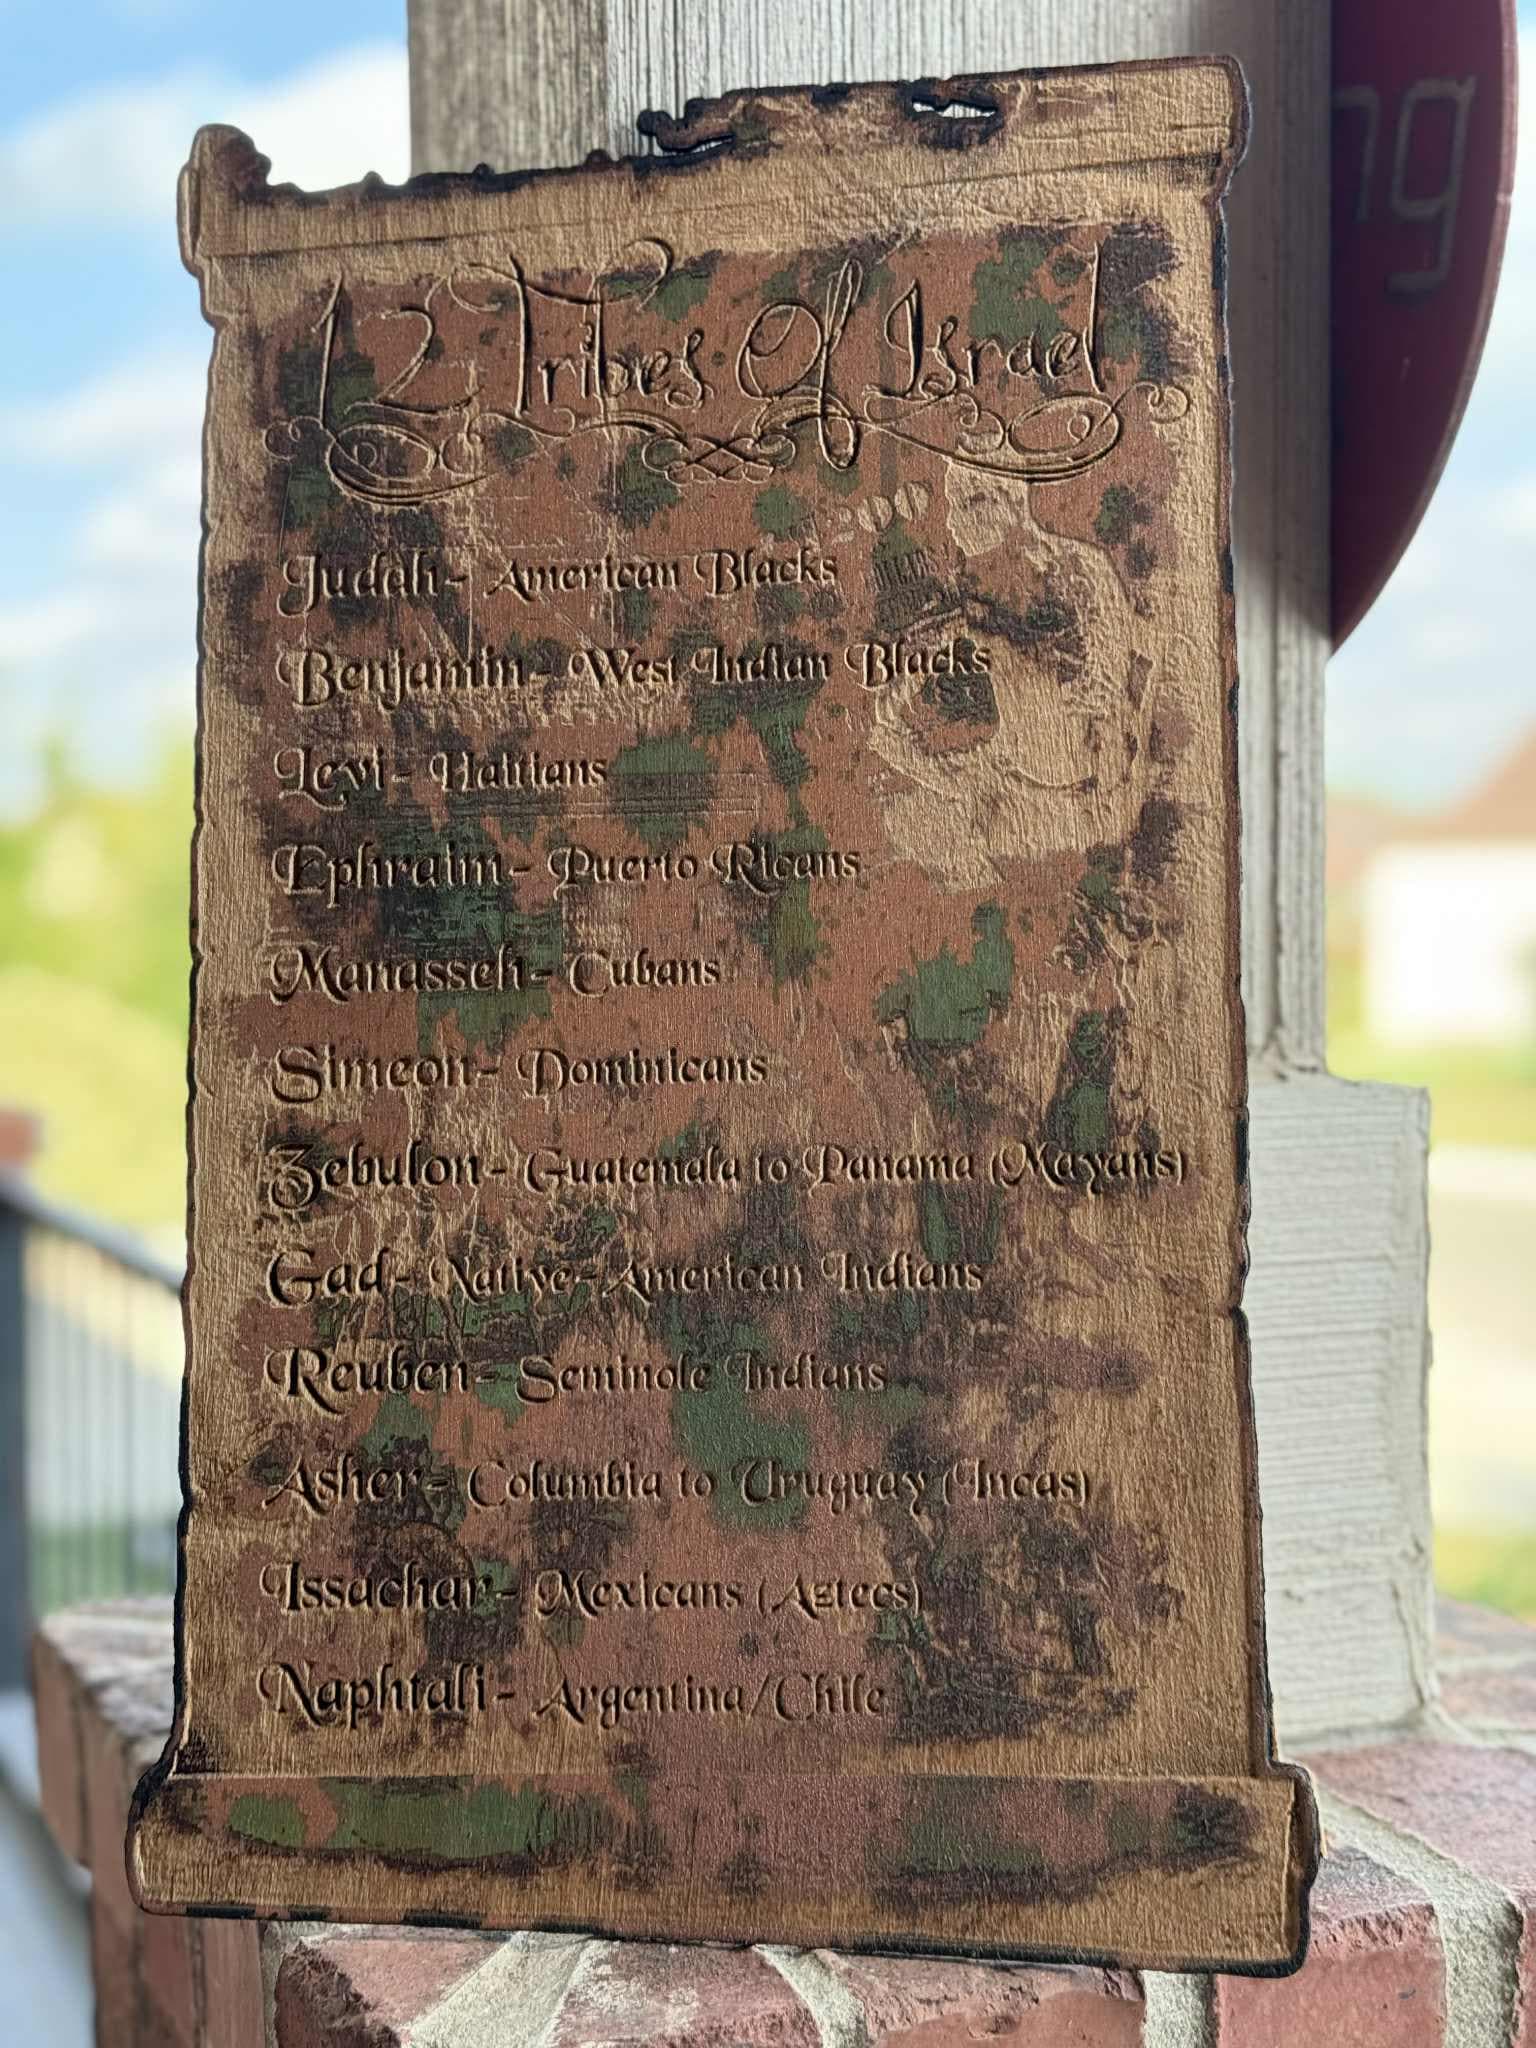 ng
12 Tribes Of Israel
Judah- American Blacks
Benjamin- West Indian Blacks
Levi- Haitians
Ephraim- Puerto Ricans
Manasseh- Cubans
Simeon- Dominicans
Zebulon- Guatemala to Panama (Mayans)
Gad- Native-American Indians
Reuben- Seminole Indians
Asher- Columbia to Uruguay (Incas)
Issachar- Mexicans (Aztecs)
Naphtali- Argentina/Chile